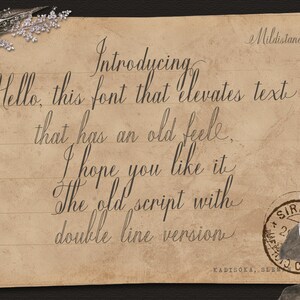 Mildistand
Introducing
Hello, this font that elevates text
that has an old feel,
I hope you like it
The old script with
double line version
SIR